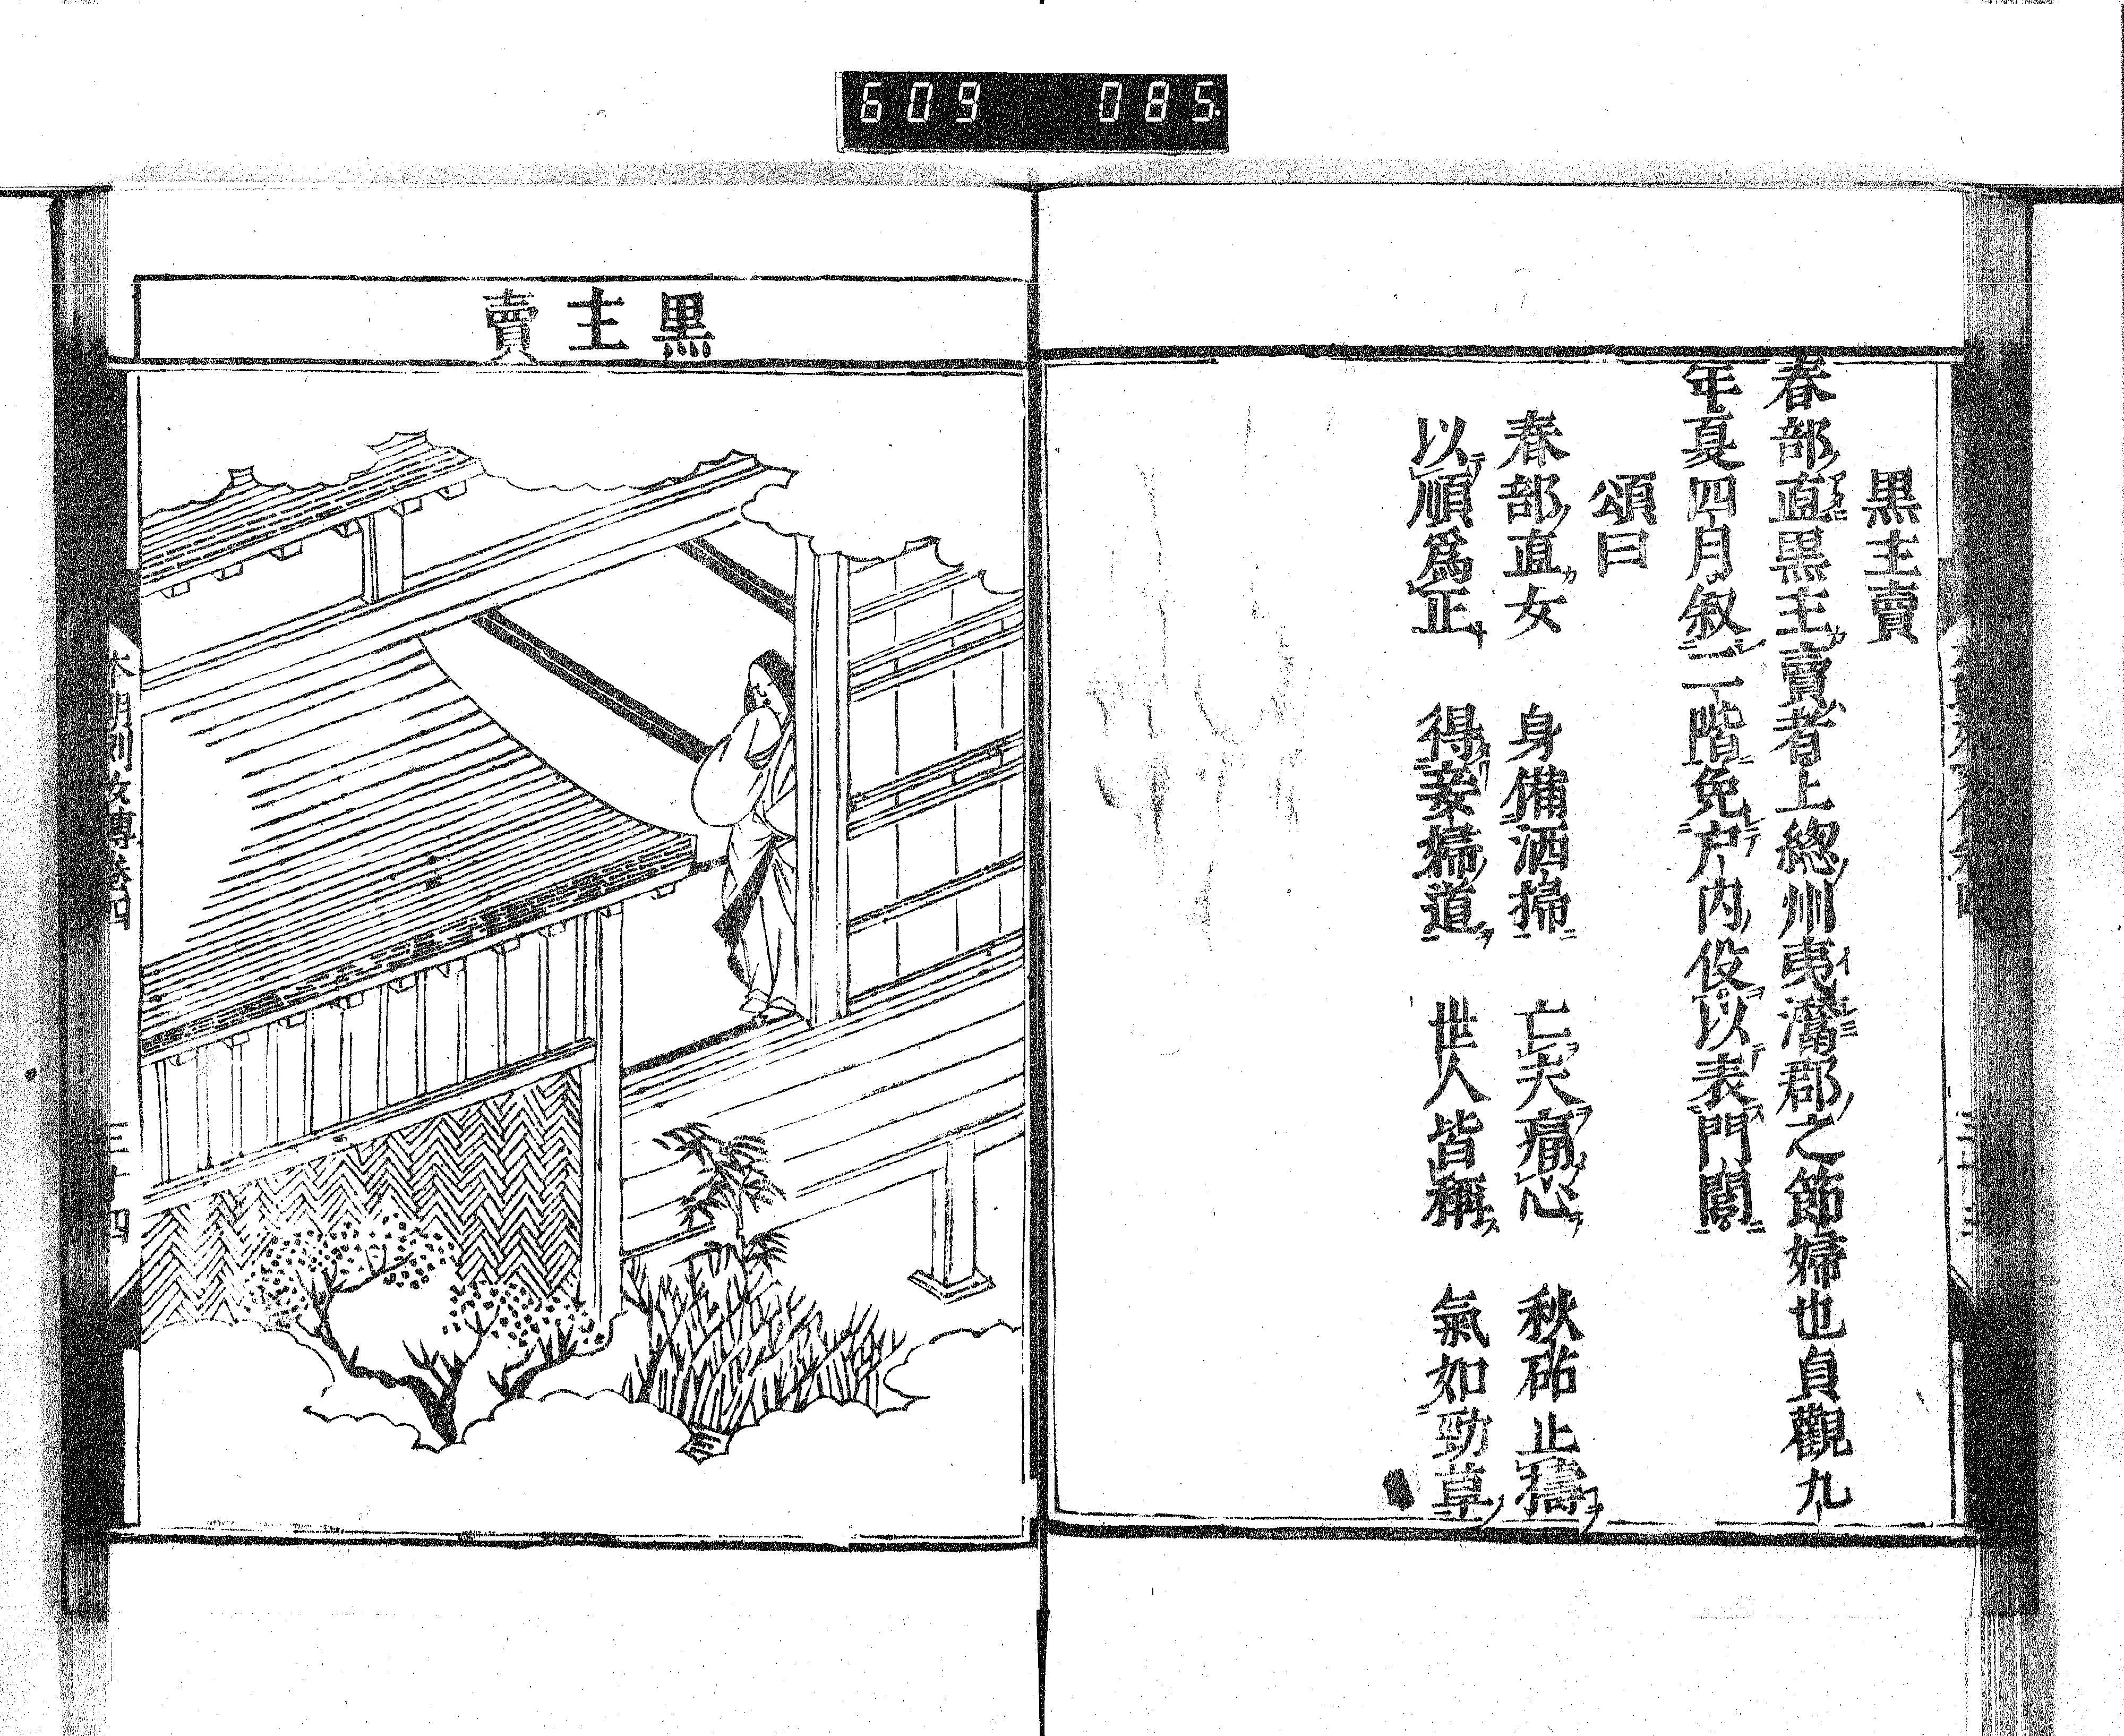 609 085
黒主賣
春部直黒主賣者上總州夷灊郡之節婦也貞觀九
年夏四月叙二階免戸内役以表門閭
頌曰
春部直女 身備洒掃 亡夫痛心 秋砧止擣
以順爲正 得妾婦道 世人皆稱 氣如勁草
黒主賣
本朝列女傳卷四 三十四